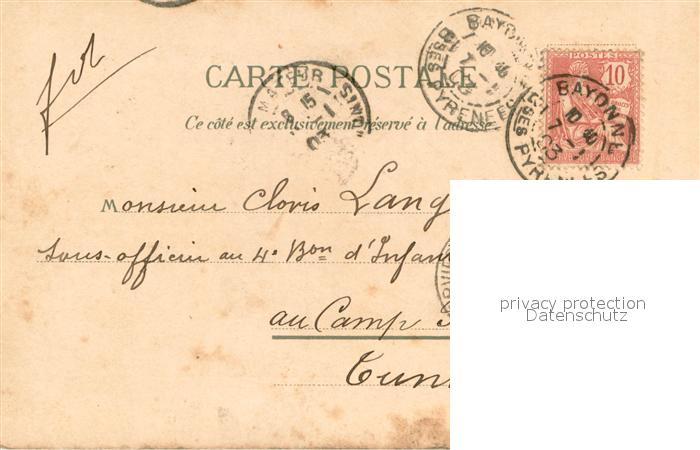 CARTE POSTALE
Ce côté est exclusivement réservé à l'adresse
POSTES
10
BAYONNE
BSES PYRENEES
BAYONNE
BSES PYRENEES
15
03
Monsieur Clovis Lang
Sous-officier au 4e Bon d'Infan
au Camp
Tuni
privacy protection
Datenschutz